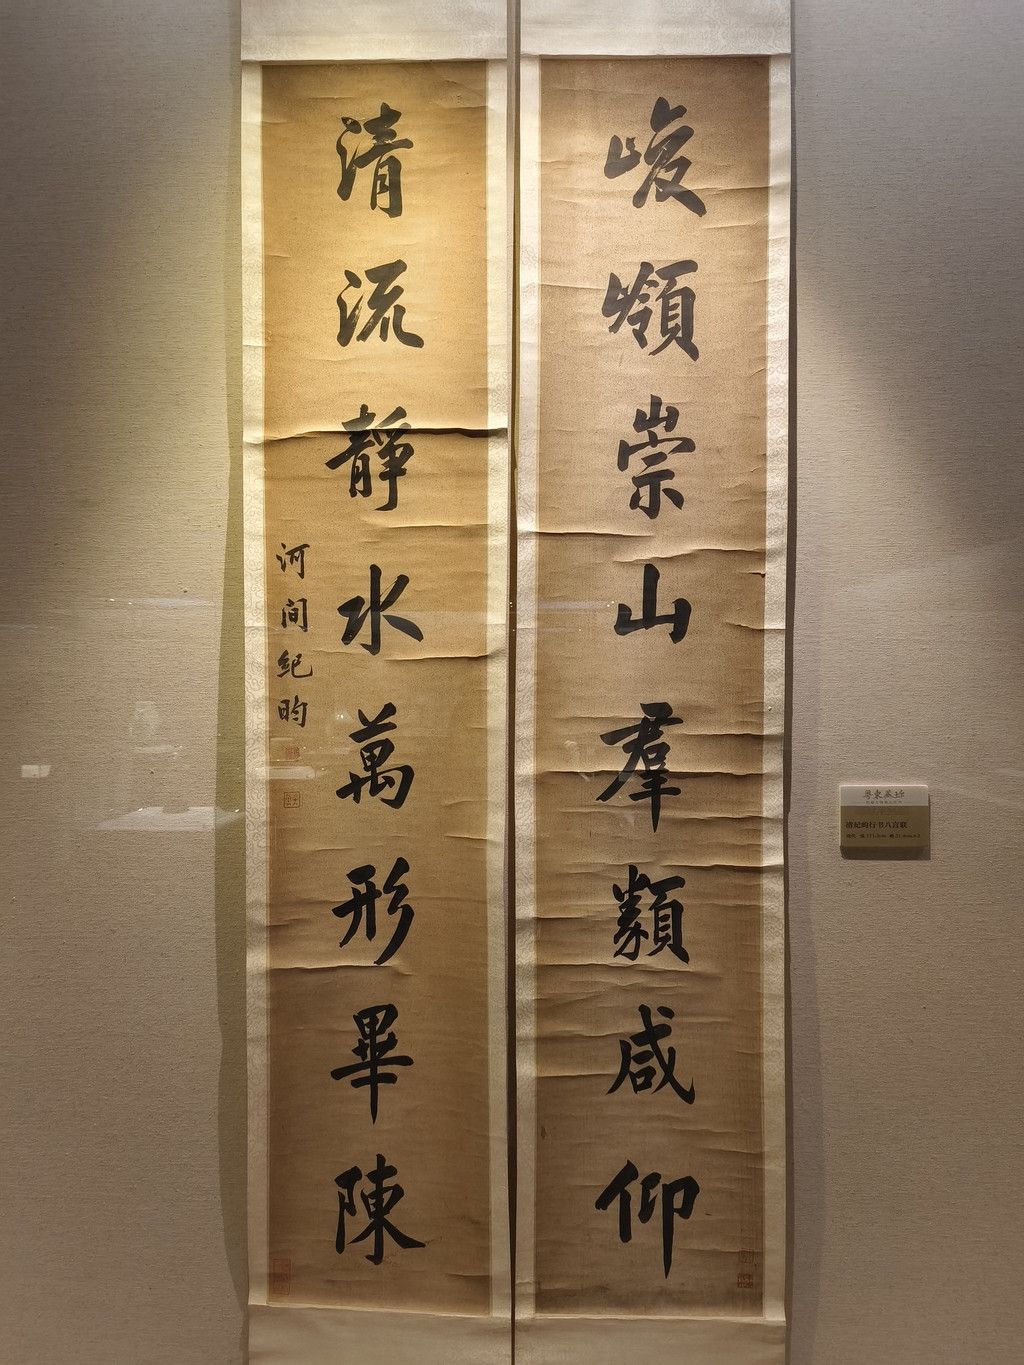 峻嶺崇山羣類咸仰
清流靜水萬形畢陳
河间紀昀
清纪昀行书八言联